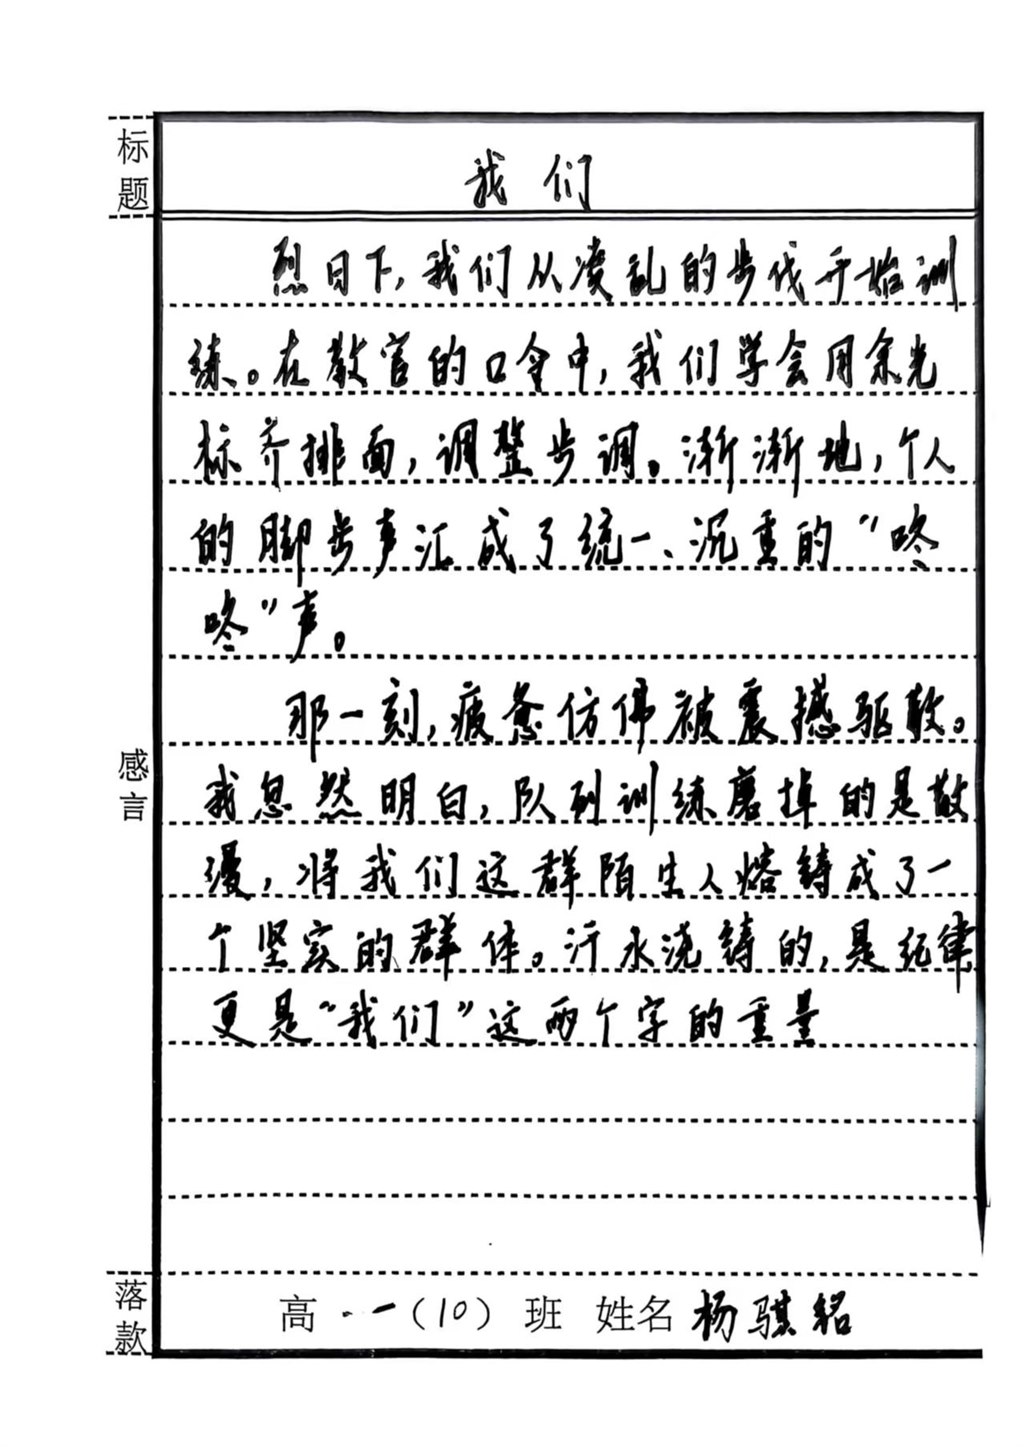 标题
我们
烈日下，我们从凌乱的步伐开始训
练。在教官的口令中，我们学会用余光
标齐排面，调整步调。渐渐地，个人
的脚步声汇成了统一、沉重的“咚
咚”声。
那一刻，疲惫仿佛被震撼驱散。
感言
我忽然明白，队列训练磨掉的是散
漫，将我们这群陌生人熔铸成了一
个坚实的群体。汗水浇铸的，是纪律
更是“我们”这两个字的重量
落款
高一（10）班 姓名 杨骐铭